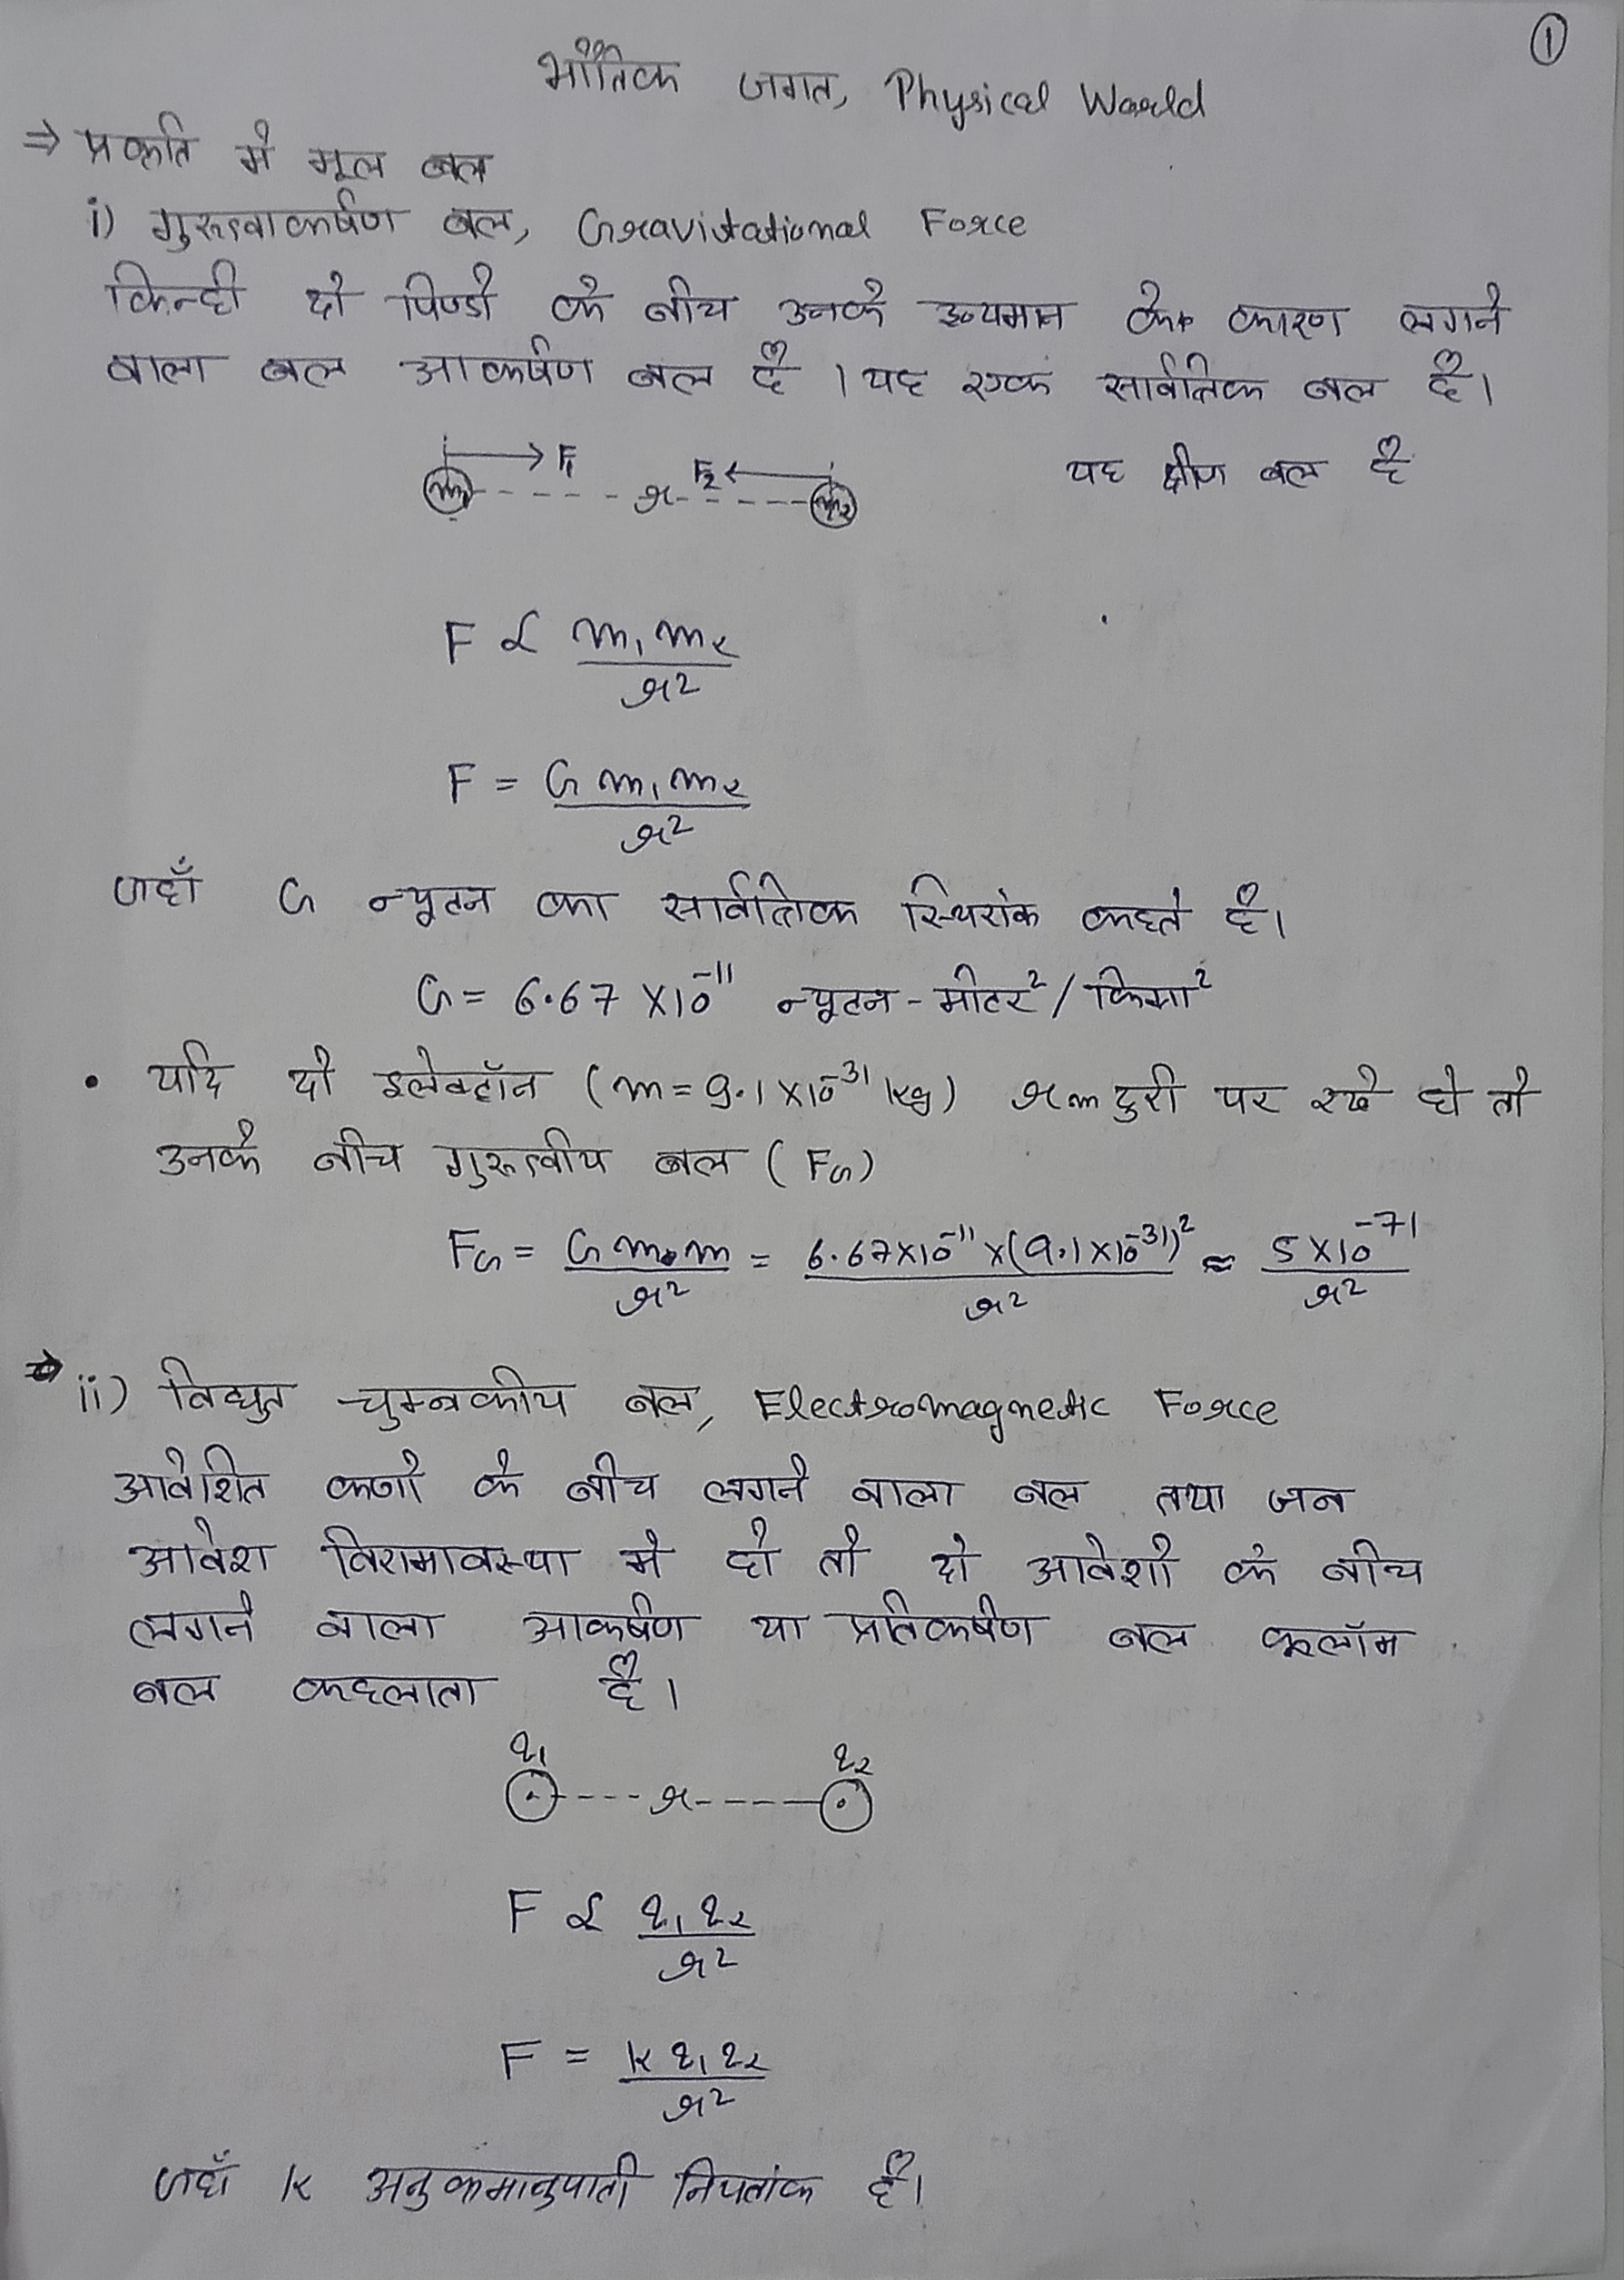 ①
भौतिक जगत, Physical World
⇒ प्रकृति मे मूल बल
i) गुरुत्वाकर्षण बल, Gravitational Force
किन्ही दो पिण्डो के बीच उनके द्रव्यमान के कारण लगने
वाला बल आकर्षण बल है । यह एक सार्वत्रिक बल है।
यह क्षीण बल है
m₁ F₁ r F₂ m₂
F ∝ m₁ m₂ / r²
F = G m₁ m₂ / r²
जहाँ G न्यूटन का सार्वत्रिक स्थिरांक कहते है।
G = 6.67 X10⁻¹¹ न्यूटन - मीटर² / किग्रा²
• यदि दो इलेक्ट्रॉन (m = 9.1 X10⁻³¹ kg) r m दुरी पर रखे हो तो
उनके बीच गुरुत्वीय बल ( FG)
FG = G m.m / r² = 6.67X10⁻¹¹ X(9.1X10⁻³¹)² / r² ≈ 5 X10⁻⁷¹ / r²
⇒ ii) विद्युत चुम्बकीय बल, Electromagnetic Force
आवेशित कणो के बीच लगने वाला बल तथा जब
आवेश विरामावस्था मे हो तो दो आवेशो के बीच
लगने वाला आकर्षण या प्रतिकर्षण बल कूलॉम
बल कहलाता है।
q₁ r q₂
F ∝ q₁ q₂ / r²
F = k q₁ q₂ / r²
जहाँ k अनुक्रमानुपाती नियतांक है।